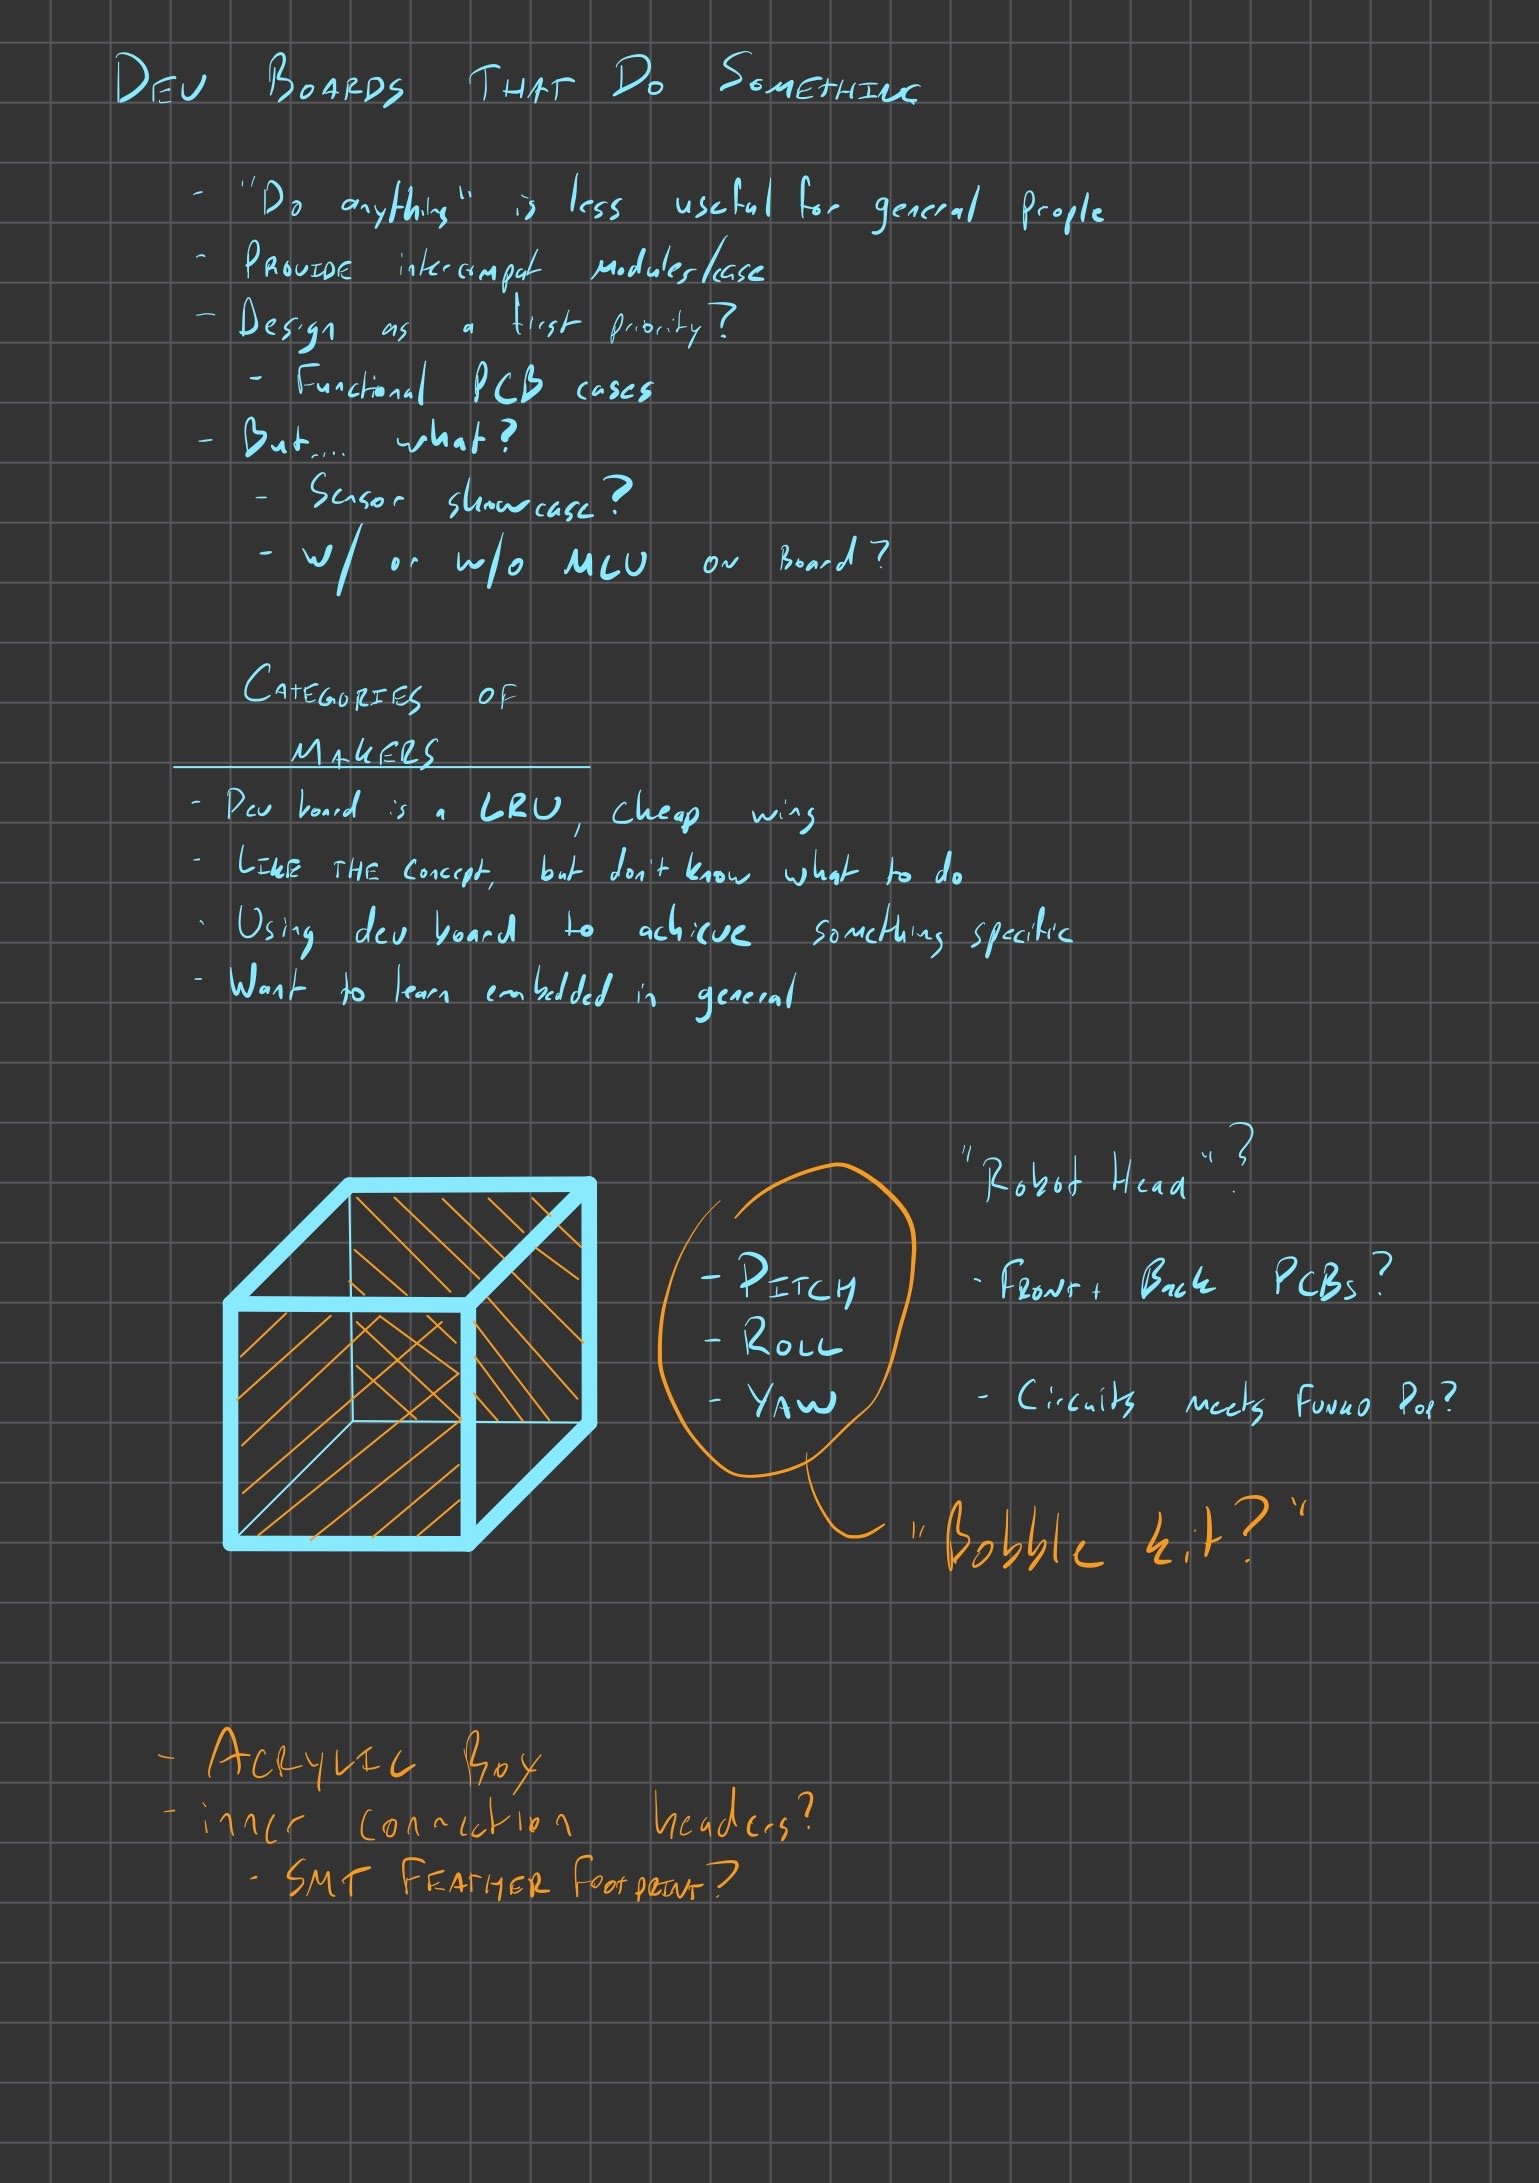 DEV BOARDS THAT DO SOMETHING
- "Do anything" is less useful for general people
- PROVIDE intercompat modules/case
- Design as a first priority?
- Functional PCB cases
- But.... what?
- Sensor showcase?
- w/ or w/o MCU on Board?
CATEGORIES OF
MAKERS
- Dev board is a LRU, cheap wins
- LIKE THE concept, but don't know what to do
- Using dev board to achieve something specific
- Want to learn embedded in general
"Robot Head"?
- PITCH
- ROLL
- YAW
- FRONT + Back PCBs?
- Circuits meets FUNKO POP?
"Bobble kit?"
- ACRYLIC BOX
- inner connection headers?
- SMT FEATHER FOOTPRINT?